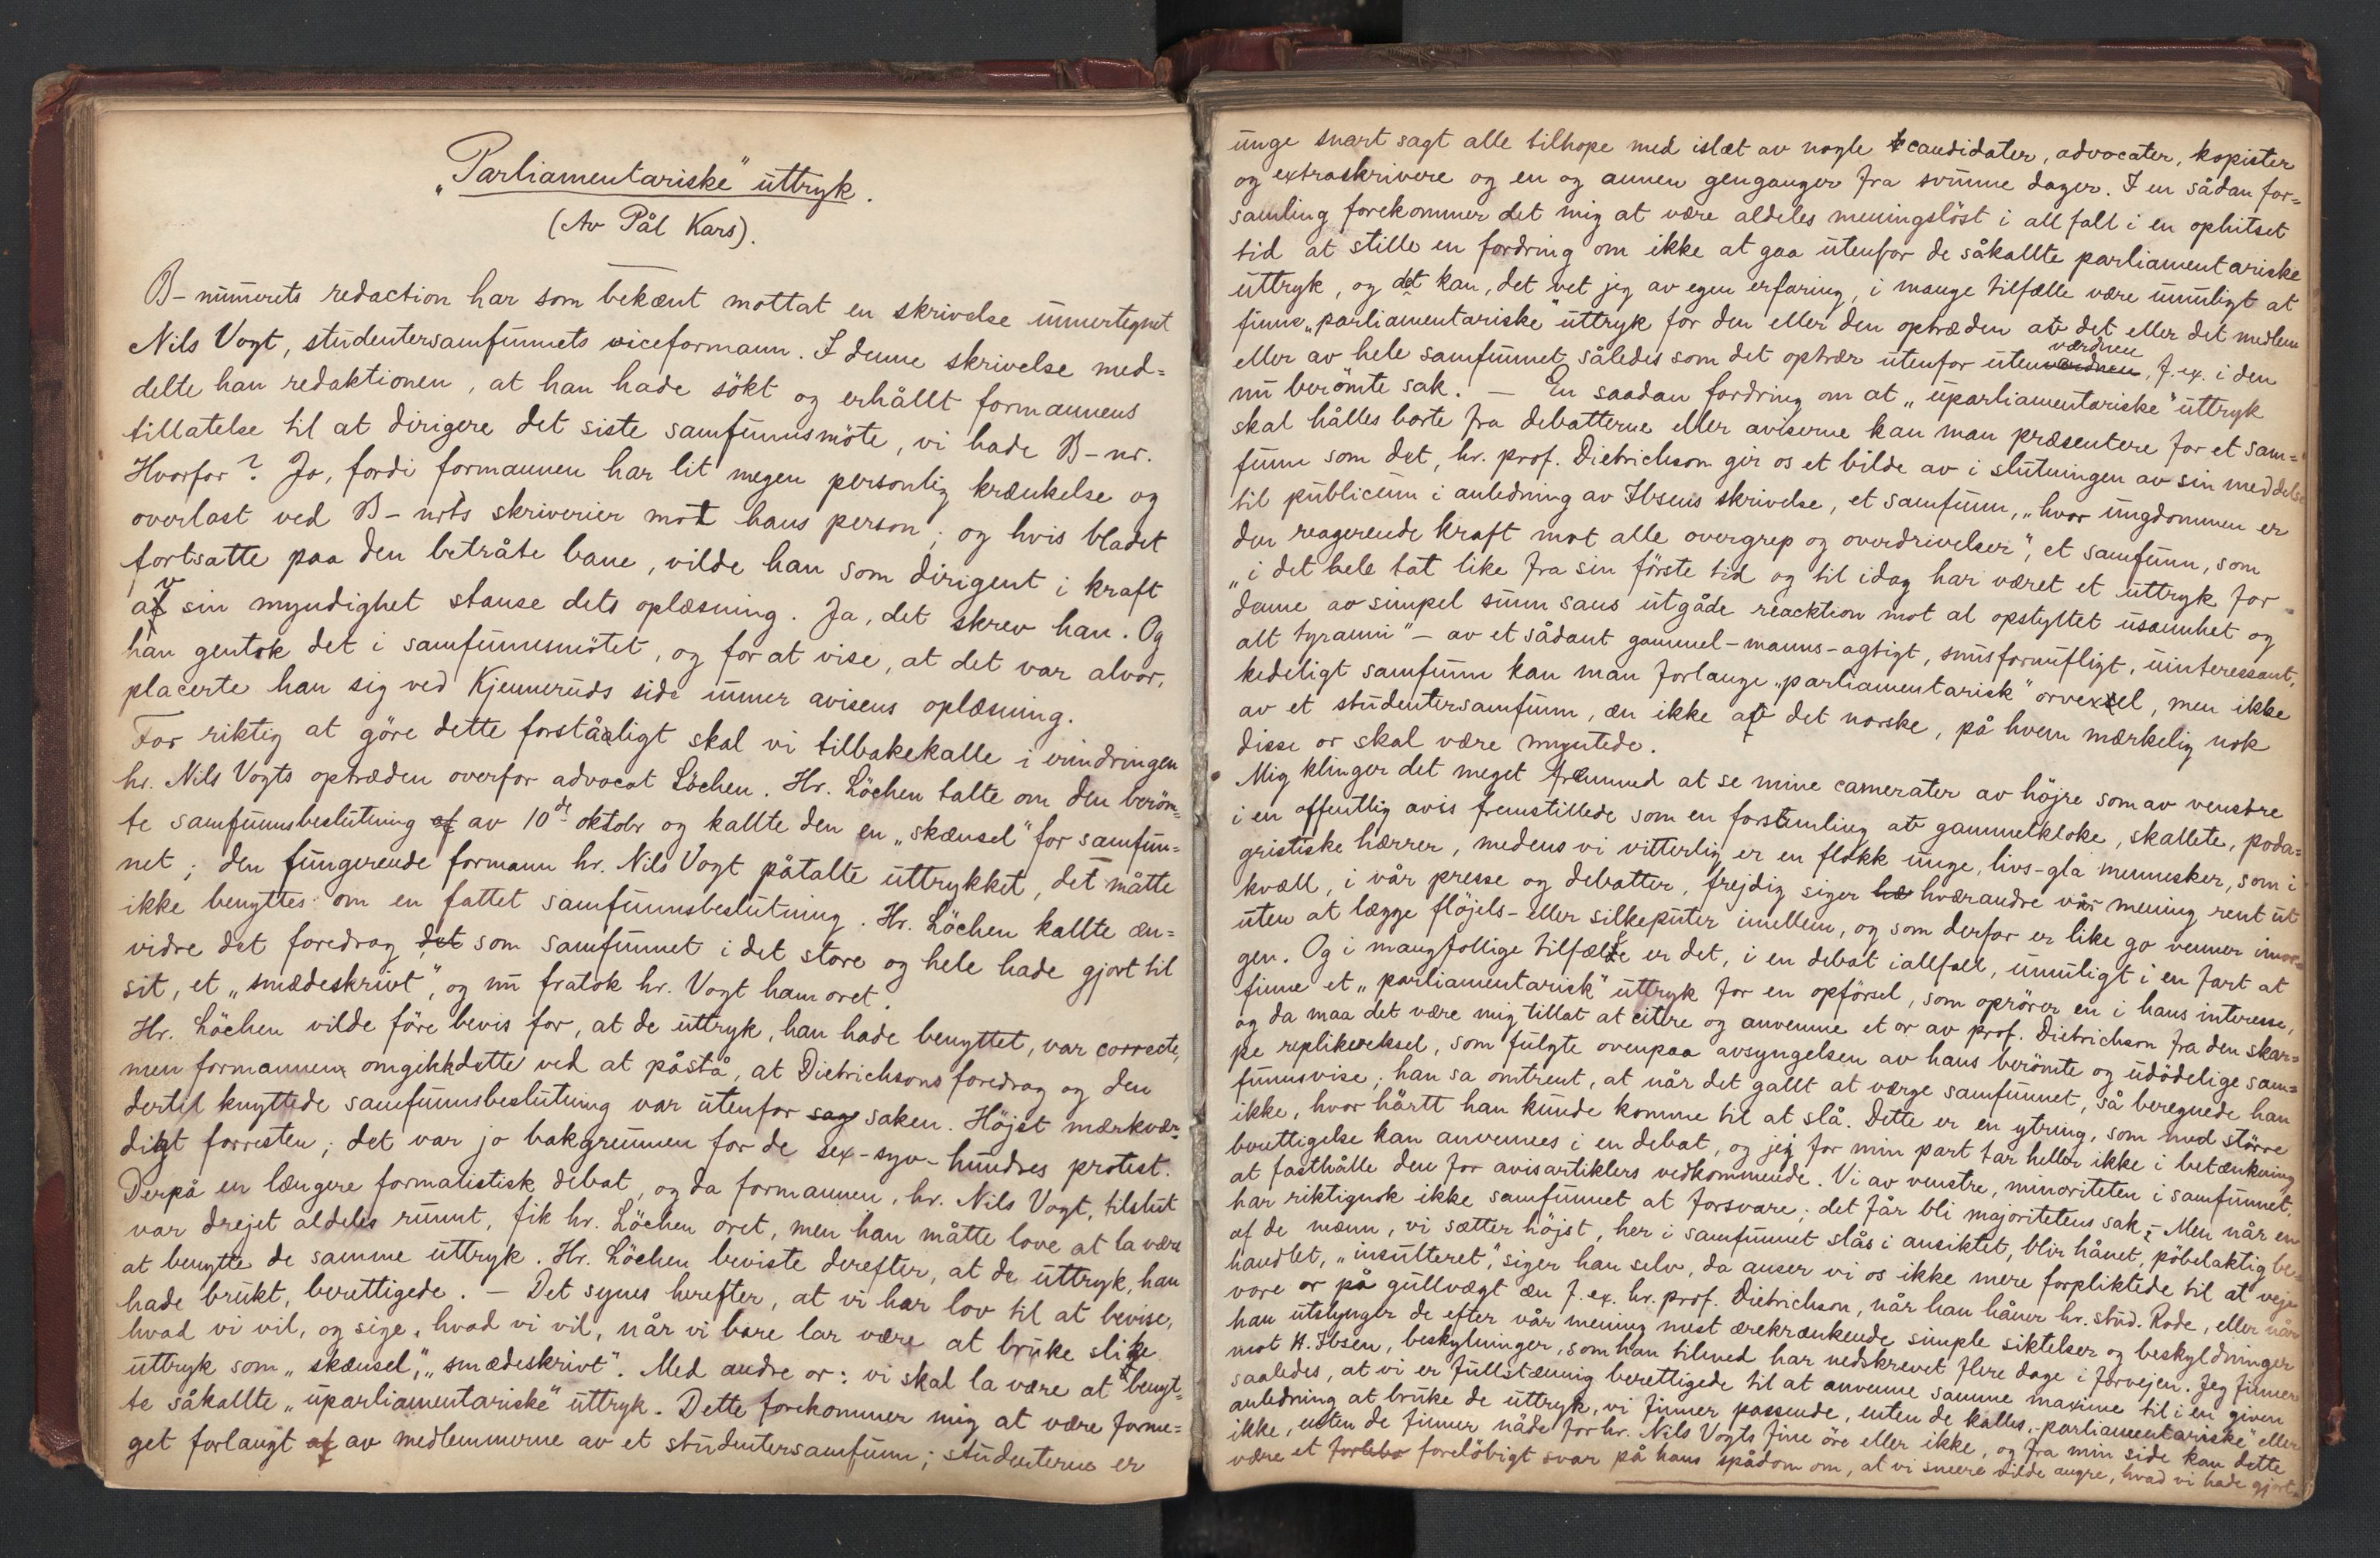 „Parliamentariske" uttryk.
(Av Pål Kars).
B-numrets redaction har som bekænt mottat en skrivelse unnertegnet
Nils Vogt, studentersamfunnets viceformann. I denne skrivelse med=
delte han redaktionen, at han hade sökt og erhållt formannens
tillatelse til at dirigere det siste samfunnsmöte, vi hade B-nr.
Hvorfor? Jo, fordi formannen har lit megen personlig krænkelse og
overlast ved B-nrts skriverier mot hans person; og hvis bladet
fortsatte paa den betråte bane, vilde han som dirigent i kraft
av sin myndighet stanse dets oplæsning. Ja, det skrev han. Og
han gentok det i samfunnsmötet, og for at vise, at det var alvor,
placerte han sig ved Kjenneruds side unner avisens oplæsning.
For riktig at göre dette forståeligt skal vi tilbakekalle i erindringen
hr. Nils Vogts optræden overfor advocat Löchen. Hr. Löchen talte om den beröm=
te samfunnsbeslutning af av 10de oktobr og kallte den en „skænsel" for samfun=
net; den fungerende formann hr. Nils Vogt påtalte uttrykket, det måtte
ikke benyttes om en fattet samfunnsbeslutning. Hr. Löchen kallte æn=
vidre det foredrag det som samfunnet i det store og hele hade gjort til
sit, et „smædeskrivt", og nu fratok hr. Vogt ham oret.
Hr. Löchen vilde före bevis for, at de uttryk, han hade benyttet, var correcte,
men formannen omgikk dette ved at påstå, at Dietrichsons foredrag og den
dertil knyttede samfunnsbeslutning var utenfor sag saken. Höjst mærkvær=
digt forresten; det var jo bakgrunnen for de sex-syv-hundres protest.
Derpå en længere formalistisk debat, og da formannen, hr. Nils Vogt, tilslut
var drejet aldeles runnt, fik hr. Löchen oret, men han måtte love at la være
at benytte de samme uttryk. Hr. Löchen beviste derefter, at de uttryk, han
hade brukt, berettigede. — Det synes herefter, at vi har lov til at bevise,
hvad vi vil, og sige, hvad vi vil, når vi bare lar være at bruke slike
uttryk som „skænsel", „smædeskrivt". Med andre or: vi skal la være at benyt=
te såkallte „uparliamentariske" uttryk. Dette forekommer mig at være forme=
get forlangt af av medlemmerne av et studentersamfunn; studenterne er
unge snart sagt alle tilhope med islæt av nogle candidater, advocater, kopister
og extraskrivere og en og annen genganger fra svunne dager. I en sådan for=
samling forekommer det mig at være aldeles meningslöst i all fall i en ophitset
tid at stille en fordring om ikke at gaa utenfor de såkallte parliamentariske
uttryk, og det kan, det vet jeg av egen erfaring, i mange tilfælle være umuligt at
finne „parliamentariske" uttryk for den eller den optræden av det eller det medlem
eller av hele samfunnet således som det optrær utenfor utenværdnen værdnen, f. ex. i den
nu berömte sak. — En saadan fordring om at „uparliamentariske" uttryk
skal hålles borte fra debatterne eller aviserne kan man præsentere for et sam=
funn som det, hr. prof. Dietrichson gir os et bilde av i slutningen av sin meddelse
til publicum i anledning av Ibsens skrivelse, et samfunn, „hvor ungdommen er
den reagerende kraft mot alle overgrep og overdrivelser", et samfunn, som
„i det hele tat like fra sin förste tid og til idag har været et uttryk for
denne av simpel sunn sans utgåde reacktion mot al opstyltet usannhet og
alt tyranni" — av et sådant gammel-manns-agtigt, snusfornufligt, uinteressant,
kedeligt samfunn kan man forlange „parliamentarisk" orvexel, men ikke
av et studentersamfunn, æn ikke av det norske, på hvem mærkelig nok
disse or skal være myntede.
Mig klinger det meget fremmed at se mine camerater av höjre som av venstre
i en offentlig avis fremstillede som en forsamling av gammelkloke, skallete, poda=
gristiske hærrer, medens vi vitterlig er en flokk unge, livs-gla mennesker, som i
kvæll, i vår presse og debatter, frejdig siger hæ hværandre vår mening rent ut
uten at lægge flöjels- eller silkeputer imellem, og som derfor er like go venner imor=
gen. Og i mangfollige tilfælle er det, i en debat iallfall, umuligt i en fart at
finne et „parliamentarisk" uttryk for en opförsel, som oprörer en i hans interesse,
og da maa det være mig tillat at citere og anvenne et or av prof. Dietrichson fra den skar=
pe replikveksel, som fulgte ovenpaa avsyngelsen av hans berömte og udödelige sam=
funnsvise; han sa omtrent, at når det gallt at værge samfunnet, så beregnede han
ikke, hvor hårtt han kunde komme til at slå. Dette er en ytring, som med större
berettigelse kan anvennes i en debat, og jej for min part tar heller ikke i betænkning
at fastholle den for avisartiklers vedkommende. Vi av venstre, minoriteten i samfunnet,
har riktignok ikke samfunnet at forsvare; det får bli majoritetens sak; — Men når en
af de menn, vi sætter höjst, her i samfunnet slås i ansiktet, blir hånet, pöbelaktig be=
handlet, „insulteret", siger han selv, da anser vi os ikke mere forpliktede til at veje
vore or på gullvægt æn f. ex. hr. prof. Dietrichson, når han håner hr. stud. Rode, eller når
han utslynger de efter vår mening mest ærekrænkende simple siktelser og beskyldninger
mot H. Ibsen, beskylninger, som han tilmed har nedskrevet flere dage i forvejen. Jeg finner
saaledes, at vi er fullstænnig berettigede til at anvenne samme maxime til i en given
anledning at bruke de uttryk, vi finner passende, enten de kalles „parliamentariske" eller
ikke, enten de finner nåde for hr. Nils Vogts fine öre eller ikke, og fra min side kan dette
være et forelöbigt svar på hans spådom om, at vi snere vilde angre, hvad vi hade gjort.